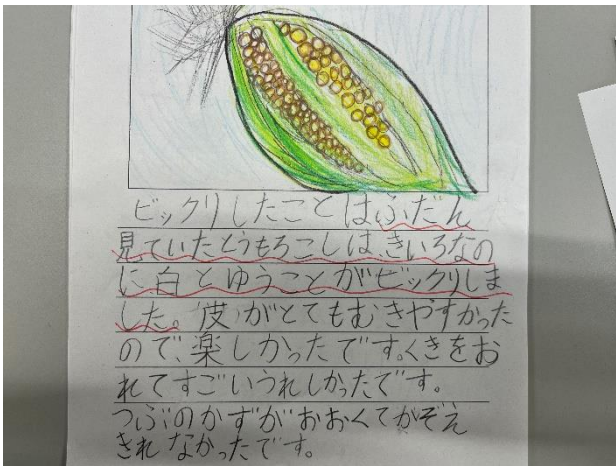 ビックリしたことはふだん
見ていたとうもろこしは、きいろなの
に白とゆうことがビックリしま
した。皮がとてもむきやすかった
ので、楽しかったです。くきをお
れてすごいうれしかったです。
つぶのかずがおおくてかぞえ
きれなかったです。